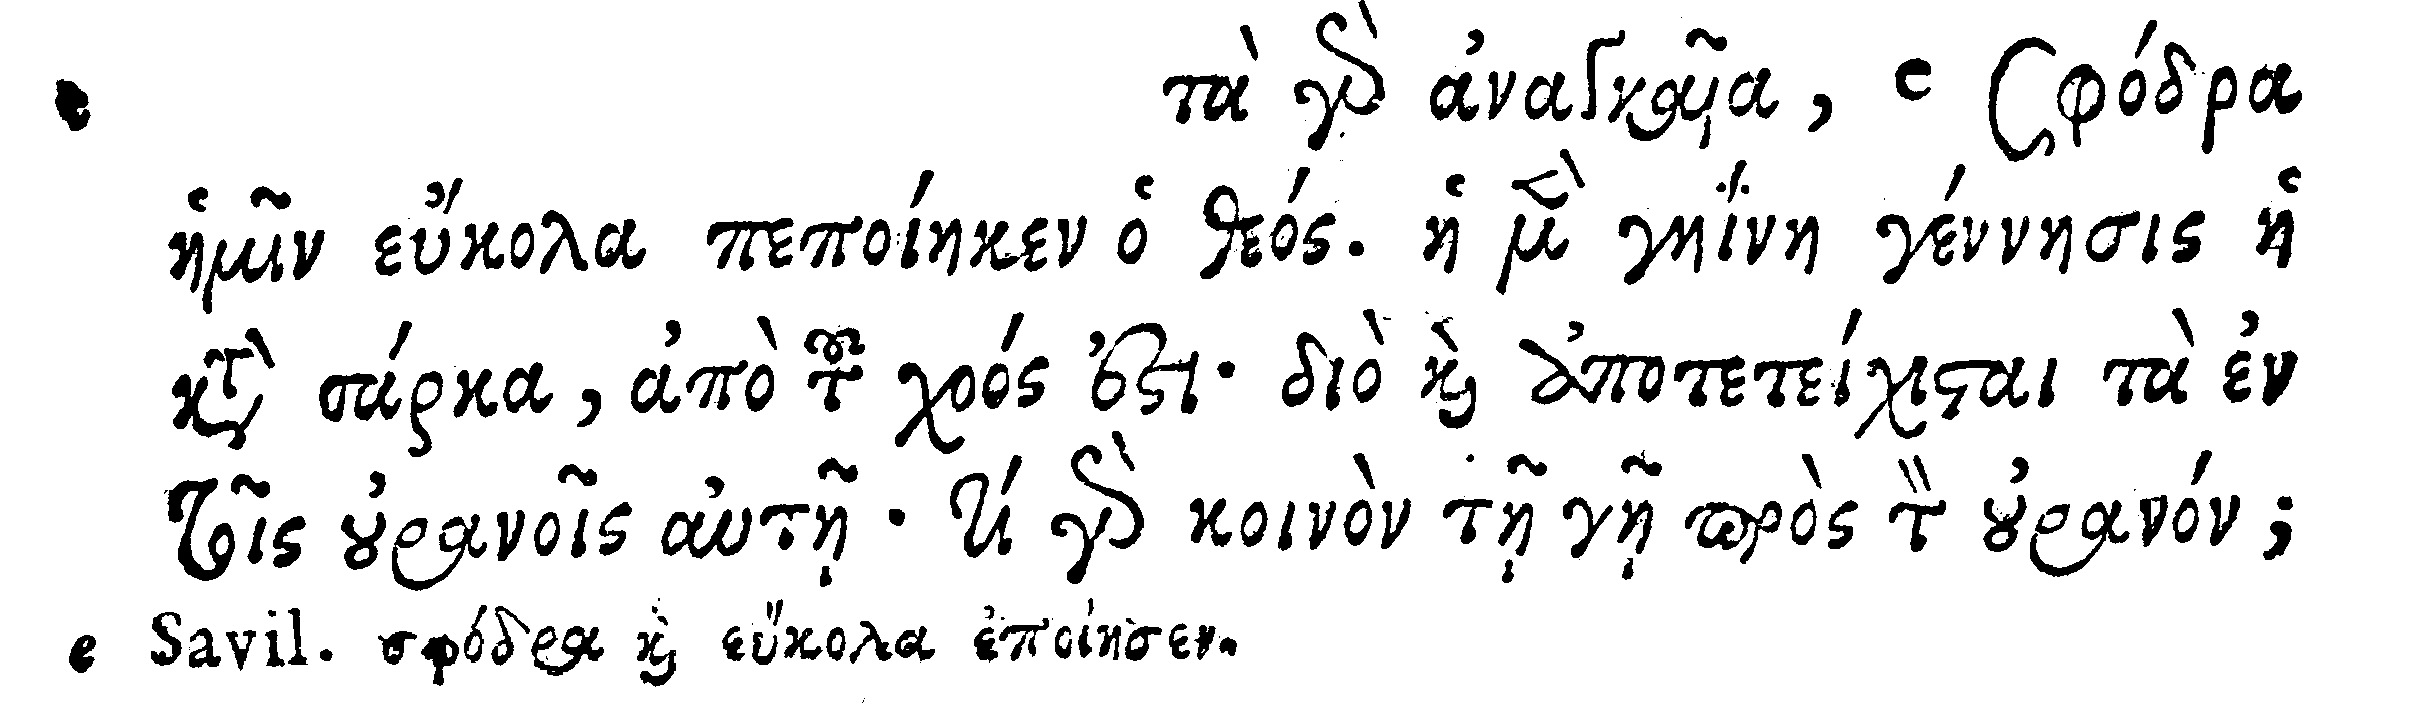 e τὰ γὰρ ἀναγκαῖα, e σφόδρα
ἡμῖν εὔκολα πεποίηκεν ὁ θεός. ἡ μὲν γηΐνη γέννησις ἡ
κατὰ σάρκα, ἀπὸ τοῦ χοός ἐστι· διὸ καὶ ἀποτετείχισται τὰ ἐν
τοῖς οὐρανοῖς αὐτῇ· τί γὰρ κοινὸν τῇ γῇ πρὸς τὸν οὐρανόν;
e Savil. σφόδρα καὶ εὔκολα ἐποίησεν.